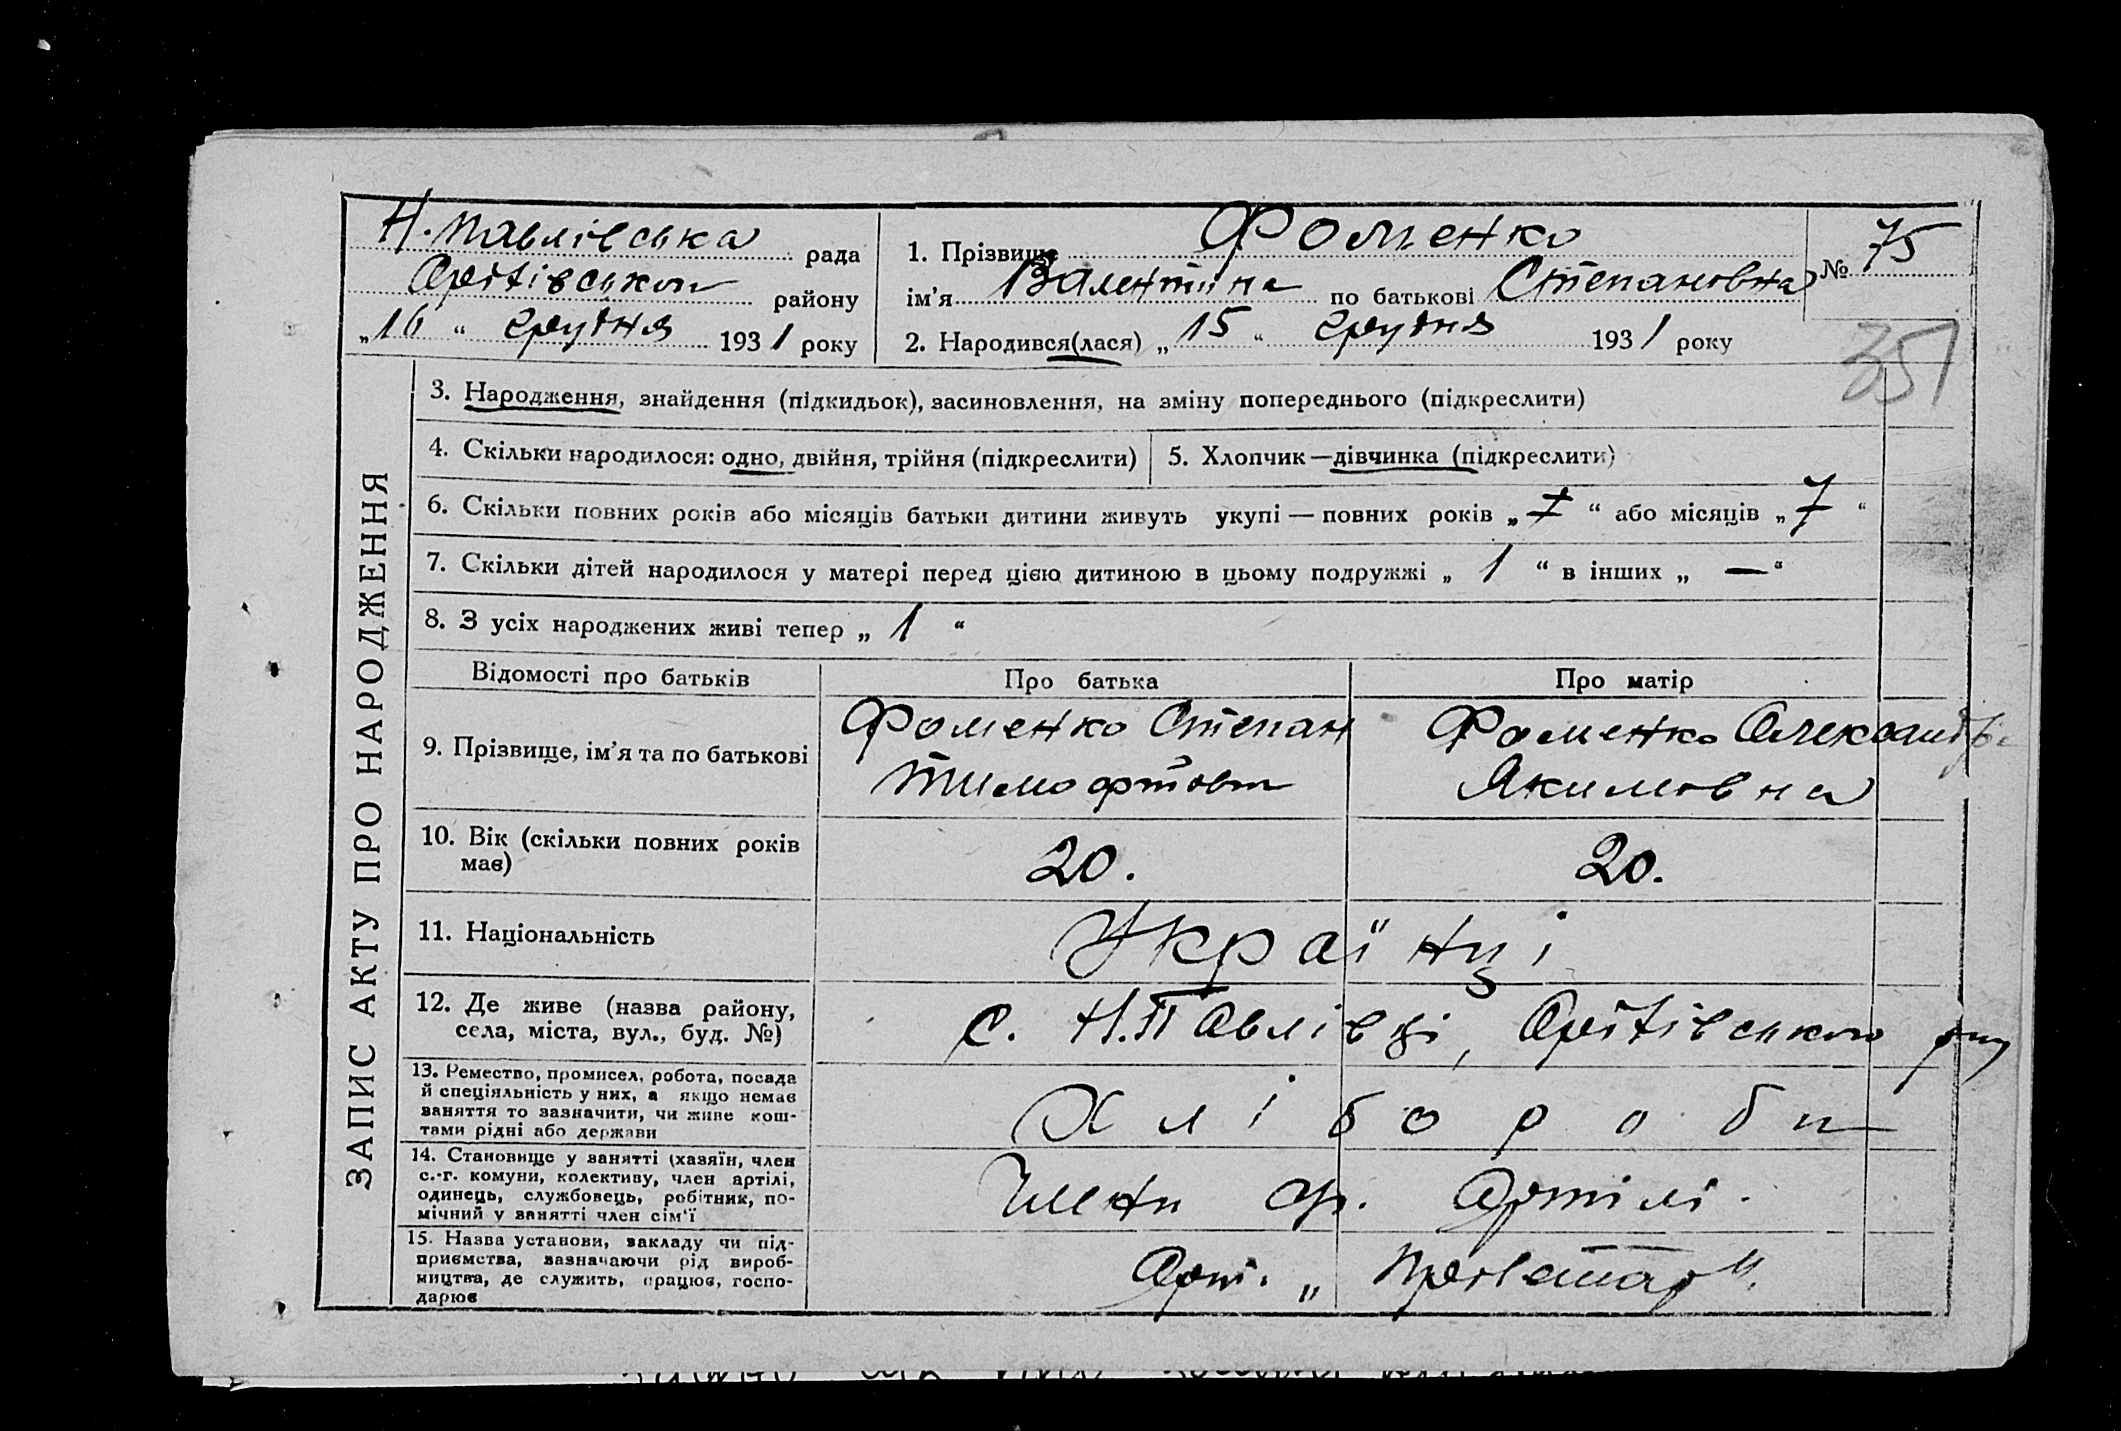 Н. Павлівська рада
району
„16“ грудня 1931 року
1. Прізвище Фоменко
ім’я Валентина по батькові Степановна
2. Народився(лася) „15“ грудня 1931 року
№ 75
351
ЗАПИС АКТУ ПРО НАРОДЖЕННЯ
3. Народження, знайдення (підкидьок), засиновлення, на зміну попереднього (підкреслити)
4. Скільки народилося: одно, двійня, трійня (підкреслити)
5. Хлопчик—дівчинка (підкреслити)
6. Скільки повних років або місяців батьки дитини живуть укупі — повних років „ “ або місяців „7“
7. Скільки дітей народилося у матері перед цією дитиною в цьому подружжі „1“ в інших „—“
8. З усіх народжених живі тепер „1“
Відомості про батьків
Про батька
Про матір
9. Прізвище, ім’я та по батькові
Фоменко Степан
Фоменко Олександра
Якимовна
10. Вік (скільки повних років
має)
20.
20.
11. Національність
Українці
12. Де живе (назва району,
села, міста, вул., буд. №)
с. Н. Павлівці,
13. Ремество, промисел, робота, посада
й спеціяльність у них, а якщо немає
заняття то зазначити, чи живе кош-
тами рідні або держави
Хлібороби
14. Становище у занятті (хазяїн, член
с.-г. комуни, колективу, член артілі,
одинець, службовець, робітник, по-
мічний у занятті член сім’ї
Члени Артілі.
15. Назва установи, закладу чи під-
приємства, зазначаючи рід вироб-
ництва, де служить, працює, госпо-
дарює
Арт. „Пролетар“.